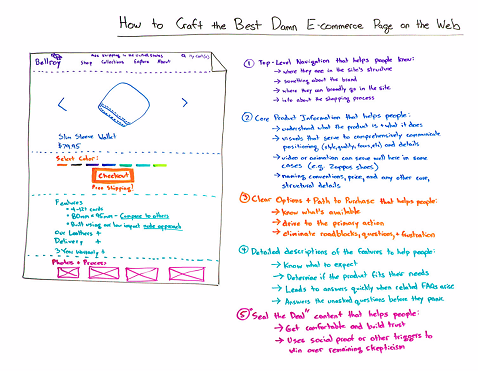 How to Craft the Best Damn E-commerce Page on the Web
Bellroy
Free Shipping in the United States
My Cart (0)
Shop Collections Explore About
Slim Sleeve Wallet
$79.95
Select Color:
Checkout
Free Shipping!
Features
- 4-12+ cards
- 80mm x 95mm - Compare to others
- Built using our low impact hide approach
Our Leathers +
Delivery +
3-Year Warranty +
Photos + Process
① Top-Level Navigation that helps people know:
→ where they are in the site's structure
→ something about the brand
→ where they can broadly go in the site
→ info about the shopping process
② Core Product Information that helps people:
→ understand what the product is + what it does
→ visuals that serve to comprehensively communicate
positioning, (style, quality, focus, etc) and details
→ video or animation can serve well here in some
cases (e.g. Zappos shoes)
→ naming conventions, price, and any other core,
structural details
③ Clear Options + Path to Purchase that helps people:
→ know what's available
→ drive to the primary action
→ eliminate roadblocks, questions, + frustration
④ Detailed descriptions of the features to help people:
→ Know what to expect
→ Determine if the product fits their needs
→ Leads to answers quickly when related FAQs arise
→ Answers the unasked questions before they panic
⑤ "Seal the Deal" content that helps people:
→ Get comfortable and build trust
→ Uses social proof or other triggers to
win over remaining skepticism